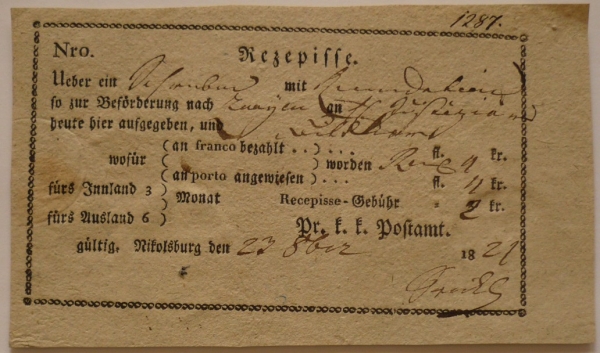 1287.
Nro. Rezepisse.
Ueber ein Schreiben mit
so zur Beförderung nach an
heute hier aufgegeben, und
(an franco bezahlt . .) . . . fl. 4 kr.
wofür ( ) worden
(an porto angewiesen) . . . fl. 4 kr.
fürs Innland 3 ) Monat Recepisse-Gebühr " 2 kr.
fürs Ausland 6 )
Pr. k. k. Postamt.
gültig. Nikolsburg den 23 8ber 1821